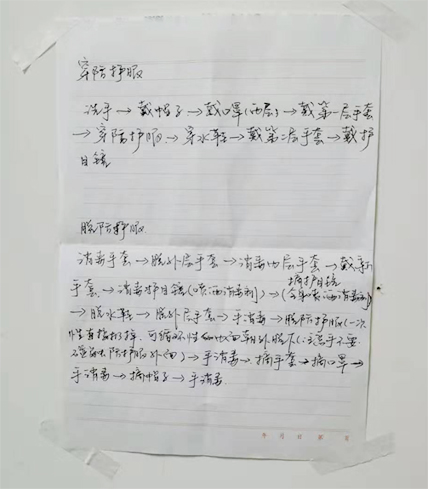 穿防护服
洗手→戴帽子→戴口罩(两层)→戴第一层手套
→穿防护服→穿水鞋→戴第二层手套→戴护
目镜
脱防护服
消毒手套→脱外层手套→消毒内层手套→戴新
摘护目镜
手套→消毒护目镜(喷洒消毒剂)→(全身喷洒消毒剂)
→脱水鞋→脱外层手套→手消毒→脱防护服(一次
性直接打掉,可循环性的里面朝外脱下(注意手不要
防护服外面)→手消毒→摘手套→摘口罩→
手消毒→摘帽子→手消毒
年 月 日